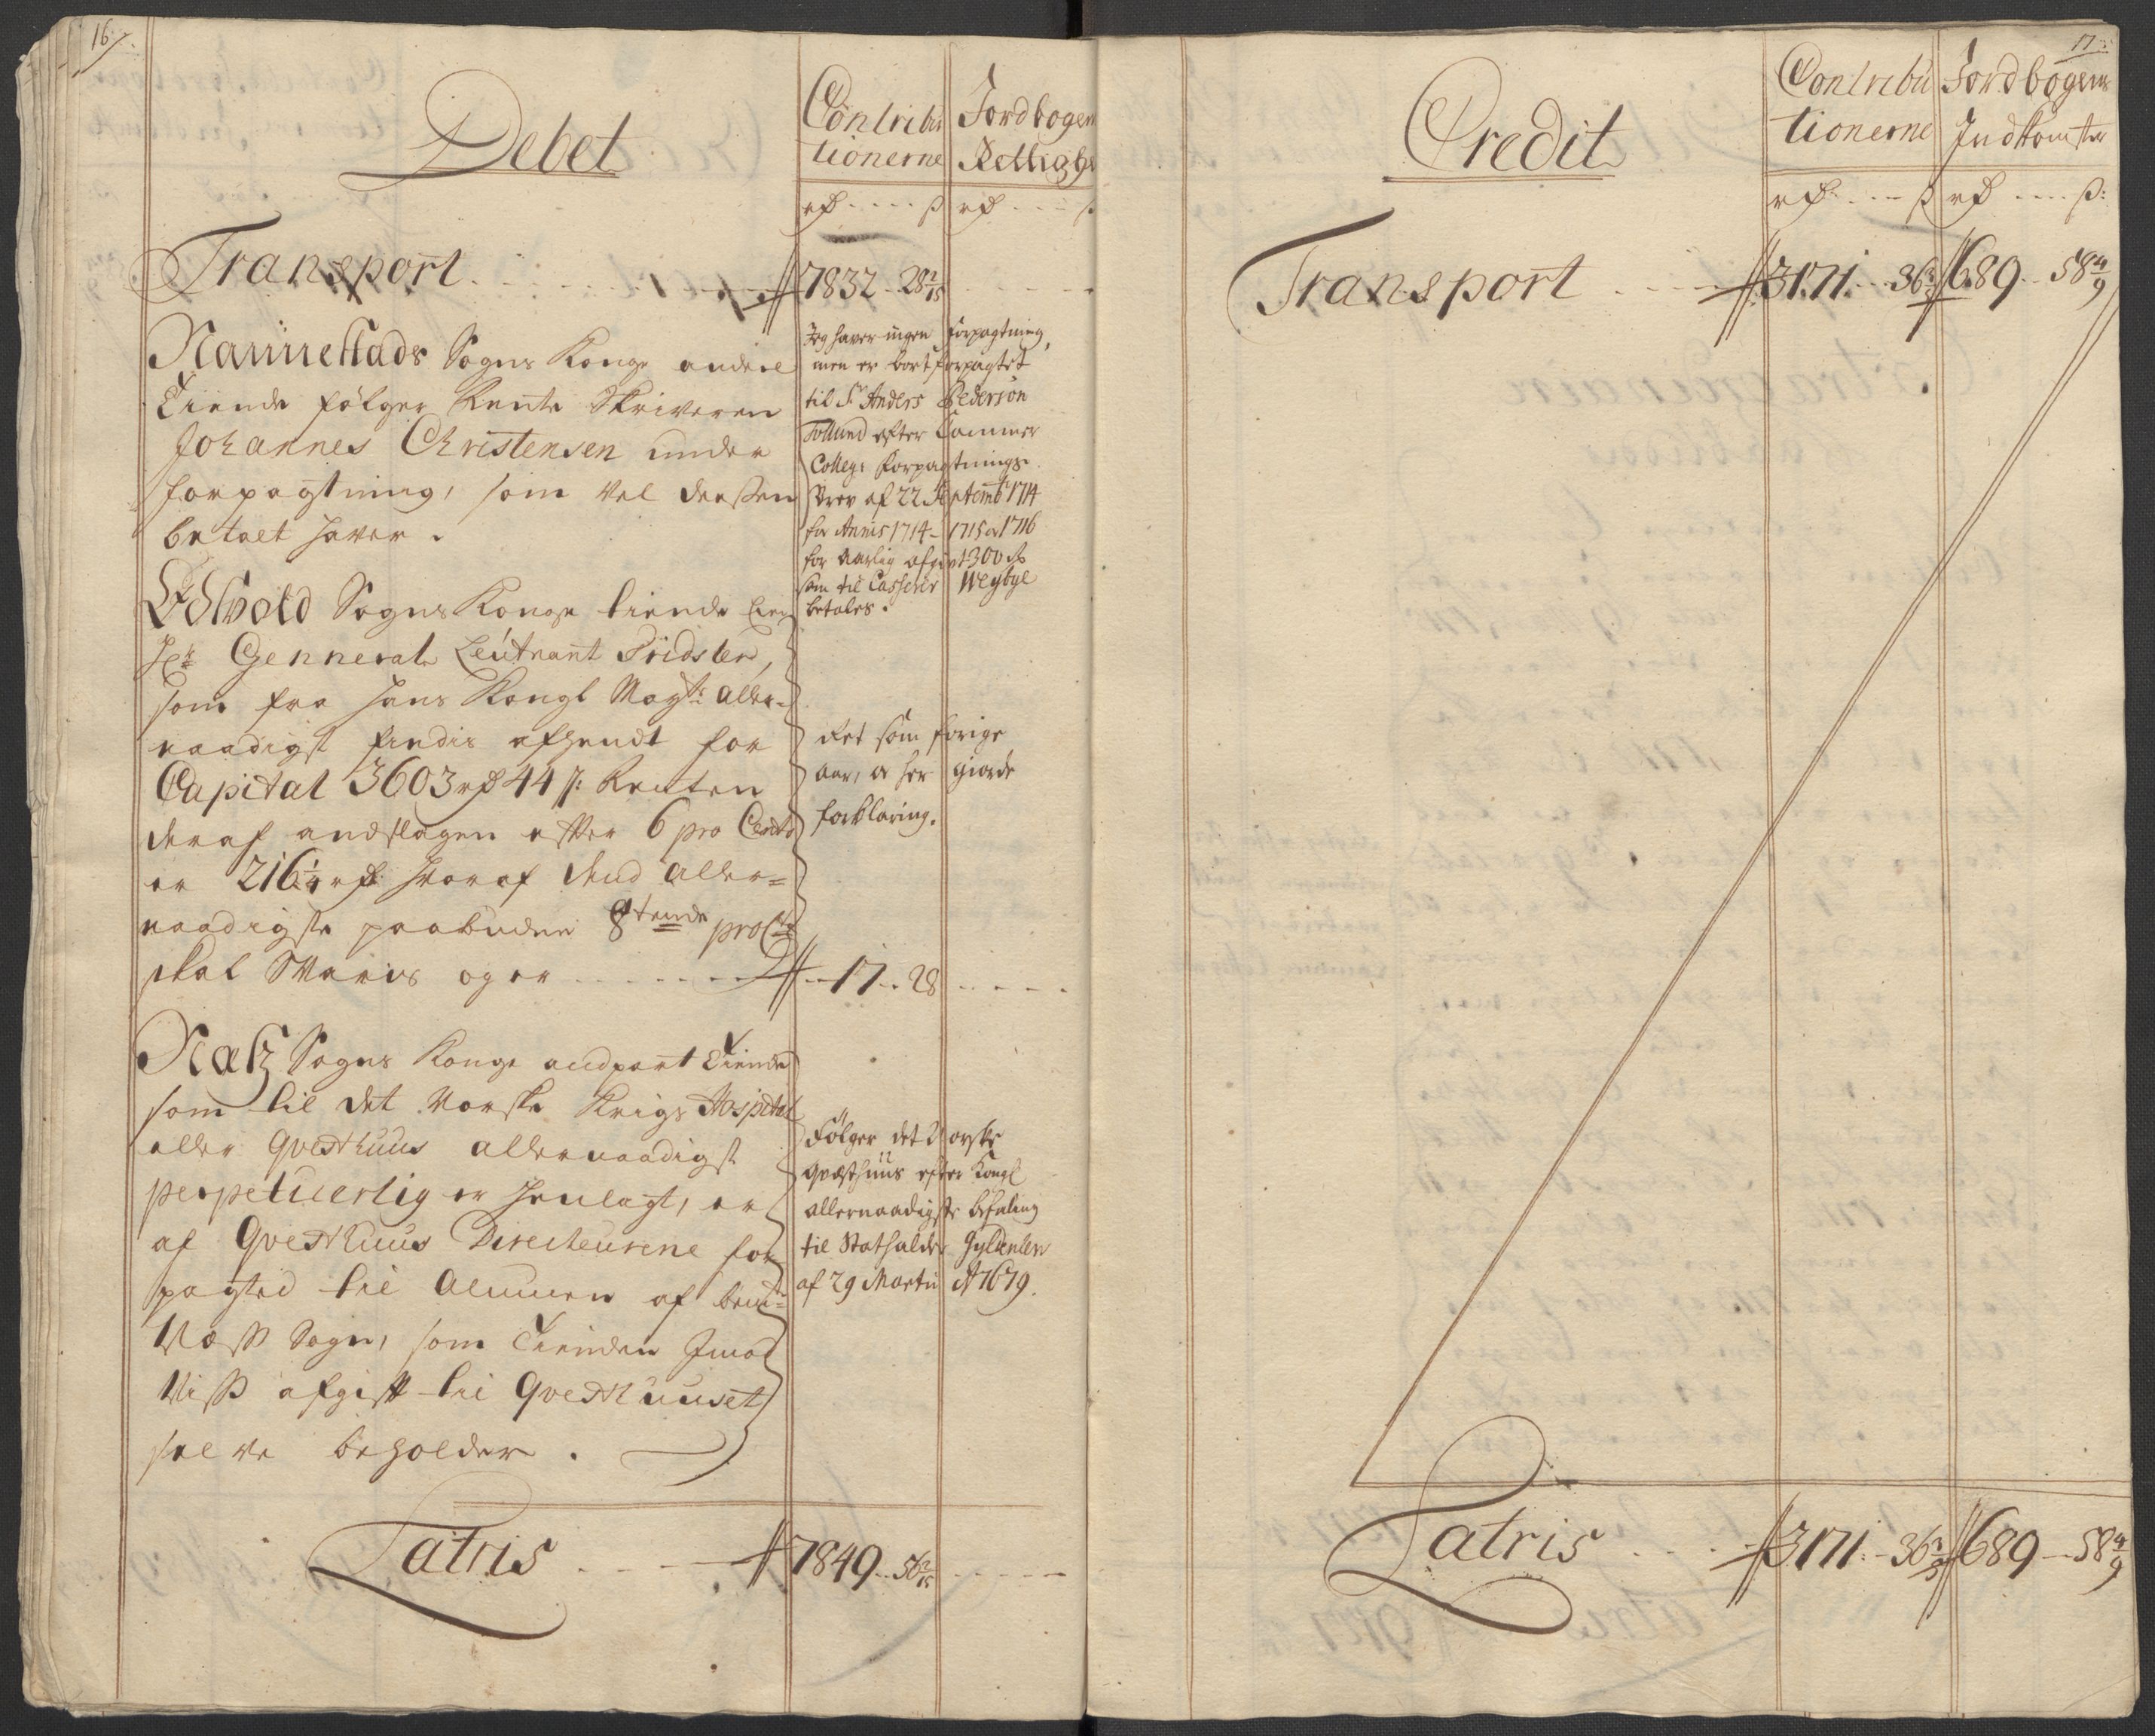 16.
Debet
Contribu
tionerne
Jordbogen
Rettighe
rd ---- ß
rd ---- ß
Transport 7832 - 28 2/15
Nannestads Sogns Konge anderl
Tiende følger Rente Skriveren
Johannes Christensen under
forpagtning, som vel derssen
betalt haver.
Jeg haver ingen forpagtning,
men er bortforpagtet
til Sr Anders Pedersøn
Tollund efter Cammer
Colleg: Forpagtnings
Brev af 22 Septembr 1714
for Annis 1714 - 1715 og 1716
for Aarlig afgivt 300 rd
som til Casserer Weybye
betales.
Eidsvold Sogns Konge tiende
Hr Genneral Leutnant Tridsler,
som fra Hans Kongl Mayts aller-
naadigst findis afhendt for
Capital 3603 rd 44 ß: Renten
deraf andslagen effter 6 pro Cento
er 216 1/4 rd hvoraf dend aller=
naadigste paabudne 8tende pro Cto
skal Svaris og er 17 - 28
Ret som forige
aar, er her giorde
forklaring.
Næss Sogns Konge andpart Tiende
som til det Norske Krigs Hospital
eller Qvesthuus allernaadigst
perpetuerlig er henlagt, er
af Qvesthuus Directeurene for
pagted til Almuen af bem:te
Næss Sogn, som Tienden Imod
Viss afgifft til Qvesthuuset
selve beholder.
Følger det Norske
Qvæsthuus efter Kongl
allernaadigste befaling
til Stathalder Gyldenløv
af 29 Martii Ao 1679.
Latris 7849 - 56 2/15
17
Credit
Contribu
tionerne
Jordbogens
Indkomster
rd --- ß
rd ---- ß:
Transport 3171 - 36 2/5 689 - 58 4/9
Latris 3171 - 36 2/5 689 - 58 4/9